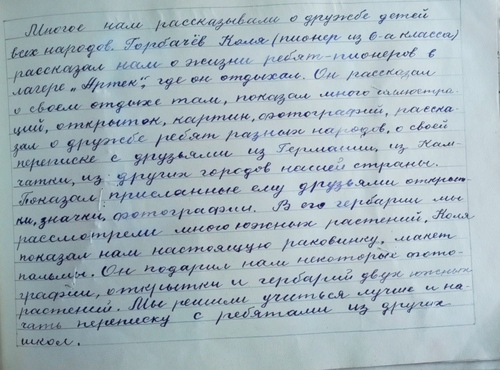 Многое нам рассказывали о дружбе детей
всех народов. Горбачёв Коля (пионер из 6-а класса)
рассказал нам о жизни ребят-пионеров в
лагере „Артек", где он отдыхал. Он рассказал
о своём отдыхе там, показал много иллюстра-
ций, открыток, картин, фотографий, расска-
зал о дружбе ребят разных народов, о своей
переписке с друзьями из Германии, из Кам-
чатки, из других городов нашей страны.
Показал присланные ему друзьями открыт-
ки, значки, фотографии. В его гербарии мы
рассмотрели много южных растений, Коля
показал нам настоящую раковинку, макет
пальмы. Он подарил нам некоторые фото-
графии, открытки и гербарий двух южных
растений. Мы решили учиться лучше и на-
чать переписку с ребятами из других
школ.